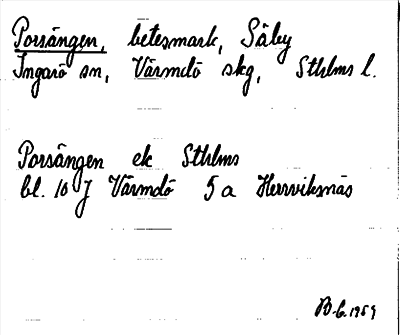 Porsängen, betesmark, Säby
Ingarö sn, Värmdö skg, Sthlms l.
Porsängen ek Sthlms
bl. 10 J Värmdö 5 a Herrviksnäs
B-G. 1959